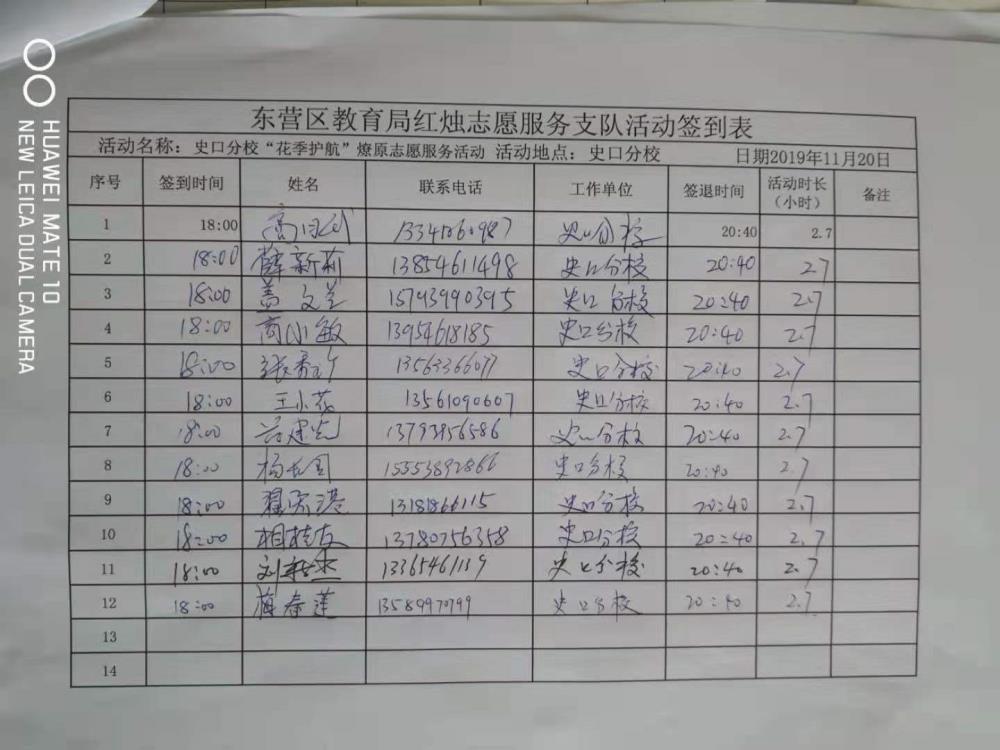 HUAWEI MATE 10
NEW LEICA DUAL CAMERA
东营区教育局红烛志愿服务支队活动签到表
活动名称：史口分校“花季护航”燎原志愿服务活动 活动地点：史口分校 日期2019年11月20日
序号 签到时间 姓名 联系电话 工作单位 签退时间 活动时长（小时） 备注
1 18:00 史口分校 20:40 2.7
2 18:00 薛新莉 13854611498 史口分校 20:40 2.7
3 18:00 盖文兰 15793990395 史口分校 20:40 2.7
4 18:00 高小敏 13954618185 史口分校 20:40 2.7
5 18:00 13563366077 史口分校 20:40 2.7
6 18:00 王小花 13561090607 史口分校 20:40 2.7
7 18:00 13793956586 史口分校 20:40 2.7
8 18:00 15553892866 史口分校 20:40 2.7
9 18:00 13181866115 史口分校 20:40 2.7
10 18:00 相桂友 13780756358 史口分校 20:40 2.7
11 18:00 史口分校 20:40 2.7
12 18:00 春莲 13589970799 史口分校 20:40 2.7
13
14